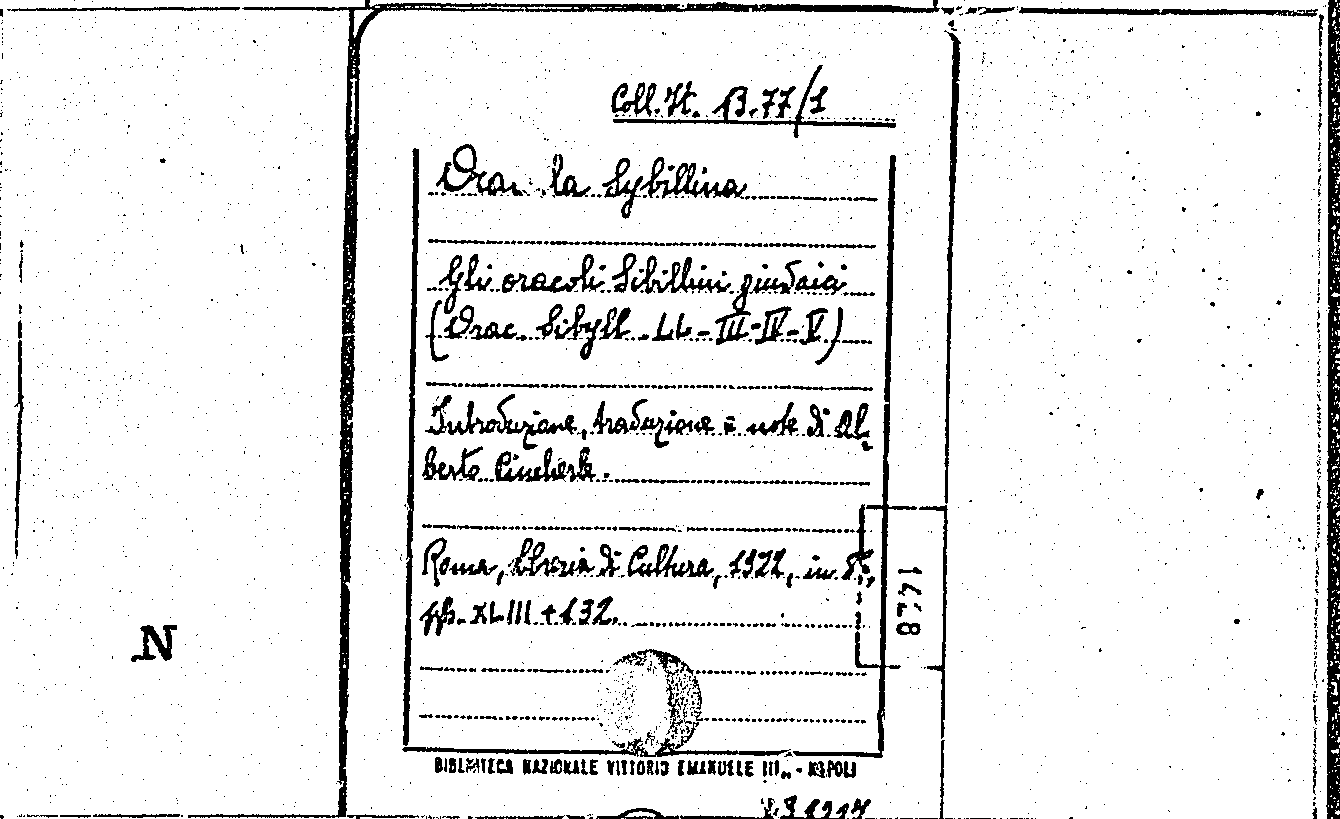 Coll. It. B. 77/1
Orac la Sybillina
Gli oracoli Sibillini giudaici
(Orac. Sibyll. LL-III-IV-V)
Introduzione, traduzione e note di Al-
berto Pincherle.
Roma, Libreria di Cultura, 1922, in 8º,
pp. XLIII + 132.
N
BIBLIOTECA NAZIONALE VITTORIO EMANUELE III„ - NAPOLI